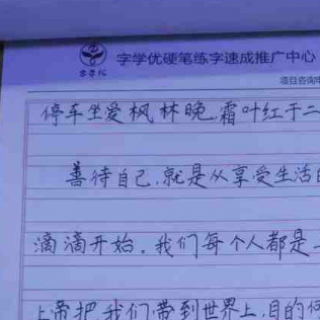 字学优硬笔练字速成推广中心
项目咨询
停车坐爱枫林晚，霜叶红于二
善待自己，就是从享受生活
滴滴开始。我们每个人都是
上帝把我们带到世界上，目的